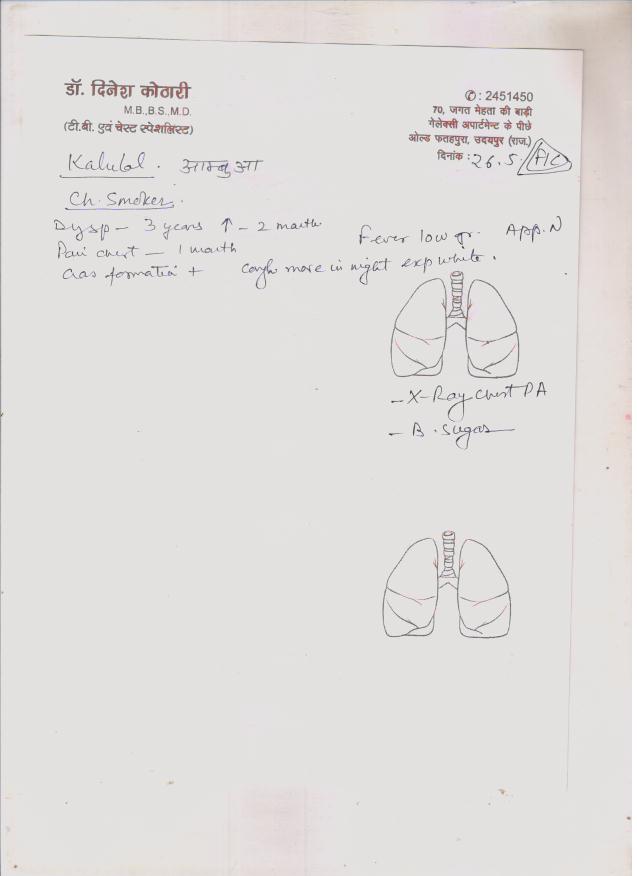 डॉ. दिनेश कोठारी
M.B.,B.S.,M.D.
(टी.बी. एवं चेस्ट स्पेशलिस्ट)
✆: 2451450
70, जगत मेहता की बाड़ी
गेलेक्सी अपार्टमेन्ट के पीछे
ओल्ड फतहपुरा, उदयपुर (राज.)
दिनांक : 26.5
Kalulal. आम्बुआ
Ch. Smoker.
Dysp – 3 years ↑ – 2 month
Pain chest – 1 month
Gas formation +
Fever low gr. App. N
cough more in night exp white.
– X-Ray Chest PA
– B. Sugar